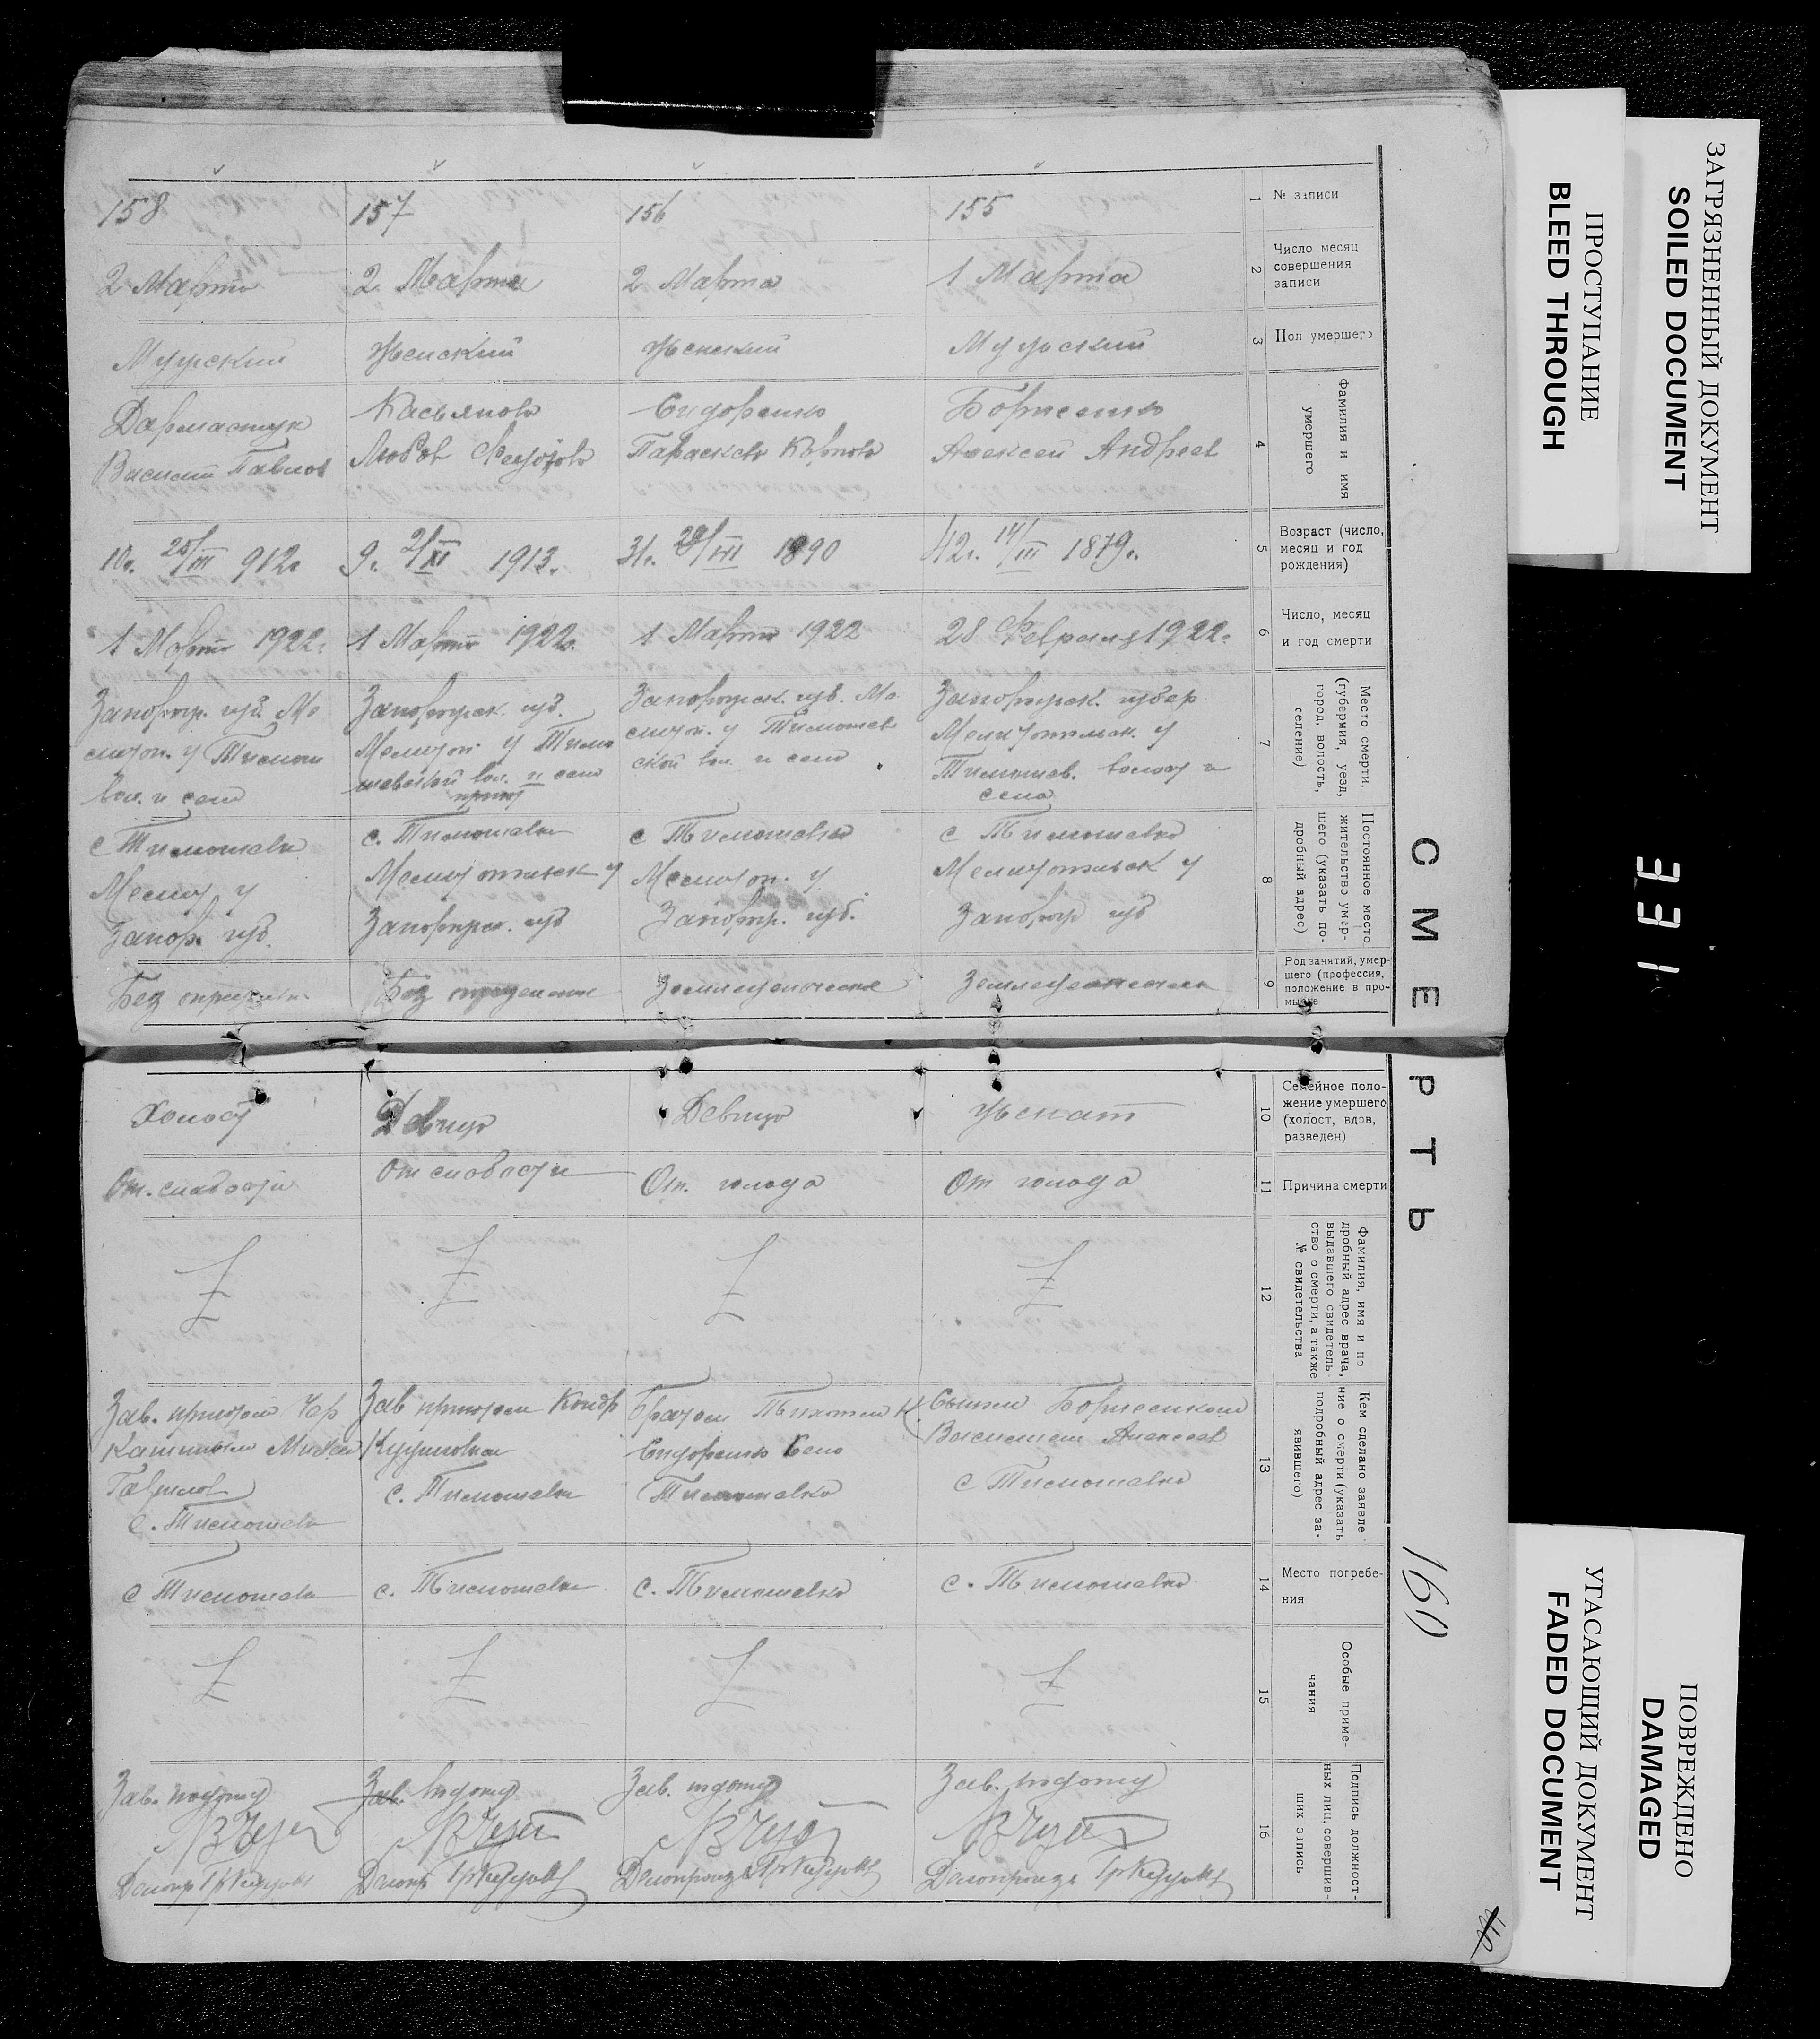 ЗАГРЯЗНЕННЫЙ ДОКУМЕНТ
SOILED DOCUMENT
ПРОСТУПАНИЕ
BLEED THROUGH
331
ПОВРЕЖДЕНО
DAMAGED
УГАСАЮЩИЙ ДОКУМЕНТ
FADED DOCUMENT
СМЕРТЬ
160
1
№ записи
155
156
157
158
2
Число месяц
совершения
записи
1 Марта
2 Марта
2 Марта
2 Марта
3
Пол умершего
Мужеский
Женский
Женский
Мужский
4
Фамилия и имя
умершего
Борисенко
Алексей Андреев
Сидоренко
Параскева Карпова
Касьянова
Любов Федорова
Дармастук
Василий Павлов
5
Возраст (число,
месяц и год
рождения)
42 г. 14/III 1879 г.
31 г. 1890
9 г. 2/XI 1913 г.
10 г. 25/III 912 г
6
Число, месяц
и год смерти
28 Февраля 1922 г.
1 Марта 1922
1 Марта 1922 г.
1 Марта 1922 г.
7
Место смерти,
(губерния, уезд,
город, волость,
селение)
Запорожск. губер
Мелитопольск. у
Тимошев. волост и
села
Запорожск. губ. Ме
литоп. у Тимошев
ской вол. и села
Запорожск. губ.
Мелитоп. у Тимо
шевской вол. и села
Запорож. губ. Ме
литоп. у Тимош
вол. и села
8
Постоянное место
жительство умер-
шего (указать по-
дробный адрес)
с Тимошевка
Мелитопольск у
Запорож губ
с Тимошевка
Мелитоп. у
Запорож. губ.
с. Тимошевка
Мелитопольск у
Запорожск. губ
с Тимошевка
Мелит у
Запор. губ.
9
Род занятий, умер-
шего (профессия,
положение в про-
мысле
Земледельческая
Земледельческая
Без определения
Без определен
10
Семейное поло-
жение умершего
(холост, вдов,
разведен)
Женат
Девица
Девица
Холост
11
Причина смерти
От голода
От. голода
От слабости
От. слабости
12
Фамилия, имя и по
дробный адрес врача,
выдавшего свидетель-
ство о смерти, а также
№ свидетельства
13
Кем сделано заявле
ние о смерти (указать
подробный адрес за-
явившего)
Сыном Борисенком
Василием Алексеев
с Тимошевка
Братом Тихоном К.
Сидоренко Село
Тимошевка
Зав приютом Кондр
с. Тимошевка
Зав. приютом Чер
Гаврилов
с. Тимошевка
14
Место погребе-
ния
с. Тимошевка
с. Тимошевка
с. Тимошевка
с Тимошевка
15
Особые приме-
чания
16
Подпись должност-
ных лиц, совершив-
ших запись
Зав. подотд
Делопроизв
Зав. подотд
Делопроизв
Зав. подотд
Делопр
Зав. подотд
Делопр